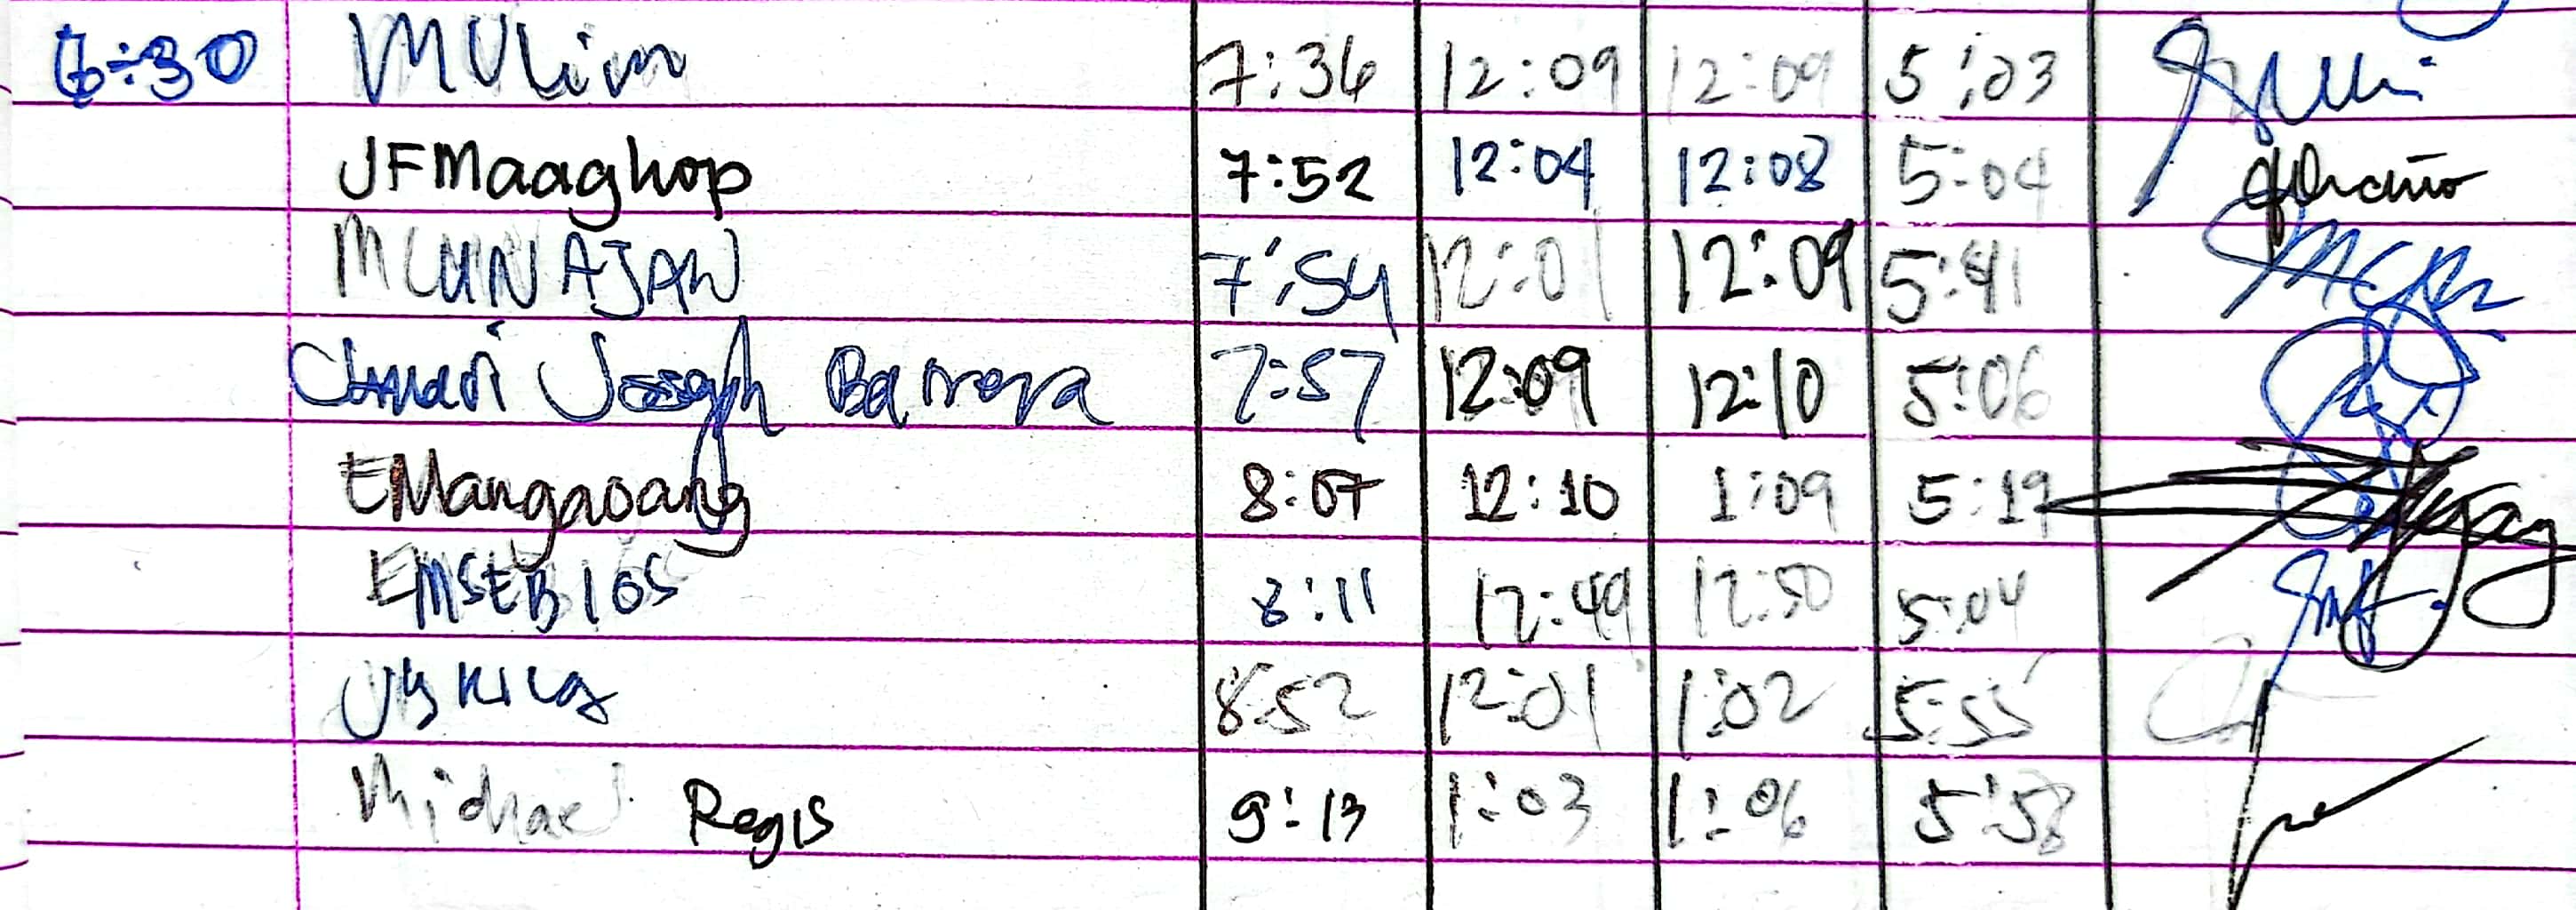 6:30 MVLim 7:36 12:09 12:09 5:03
JFMaaghop 7:52 12:04 12:08 5:04
7:54 12:01 12:09 5:41
Joseph Barrera 7:57 12:09 12:10 5:06
EMangaoang 8:07 12:10 1:09 5:19
EMSEBIOS 8:11 12:49 12:50 5:04
8:52 12:01 1:02 5:55
Michael Regis 9:13 1:03 1:06 5:58